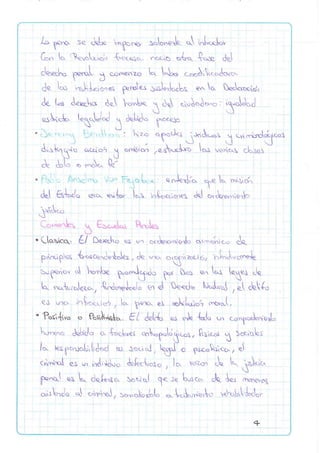 La pena se debe imponer solamente al infractor
Con la Revolución francesa, nacio otra fase del
derecho penal y comenzo la labor codificadora
de las instituciones penales sistemados en la Declaración
de los derechos del hombre y del ciudadano: igualdad
estricta legalidad y debido proceso
• Jeremy Bentham: hizo aportes juridicos y criminologicos
distinguio accion y omision, estudio las varias clases
de dolo o mala fe
• Pablo Anselmo Von Feuerbach entendia que la mision
del Estado era evitar las infracciones del ordenamiento
juridico
Corrientes y Escuelas Penales
• Clasica: El Derecho es un ordenamiento armonico de
principios trascendentales, de una organizacion
superior al hombre promulgado por Dios en las leyes de
la naturaleza, fundamentada en el Derecho Natural, el delito
es una infraccion, la pena es retribución moral.
• Positiva o Positivista. El delito es ente todo un comportamiento
humano debido a factores antropologicos, fisicos y sociales
la responsabilidad es social, legal o psicologica, el
criminal es un individuo defectuoso, la razon de la justicia
penal es la defensa social que se busca de dos maneras
aislando al criminal, sometiendolo a tratamiento rehabilitador
4